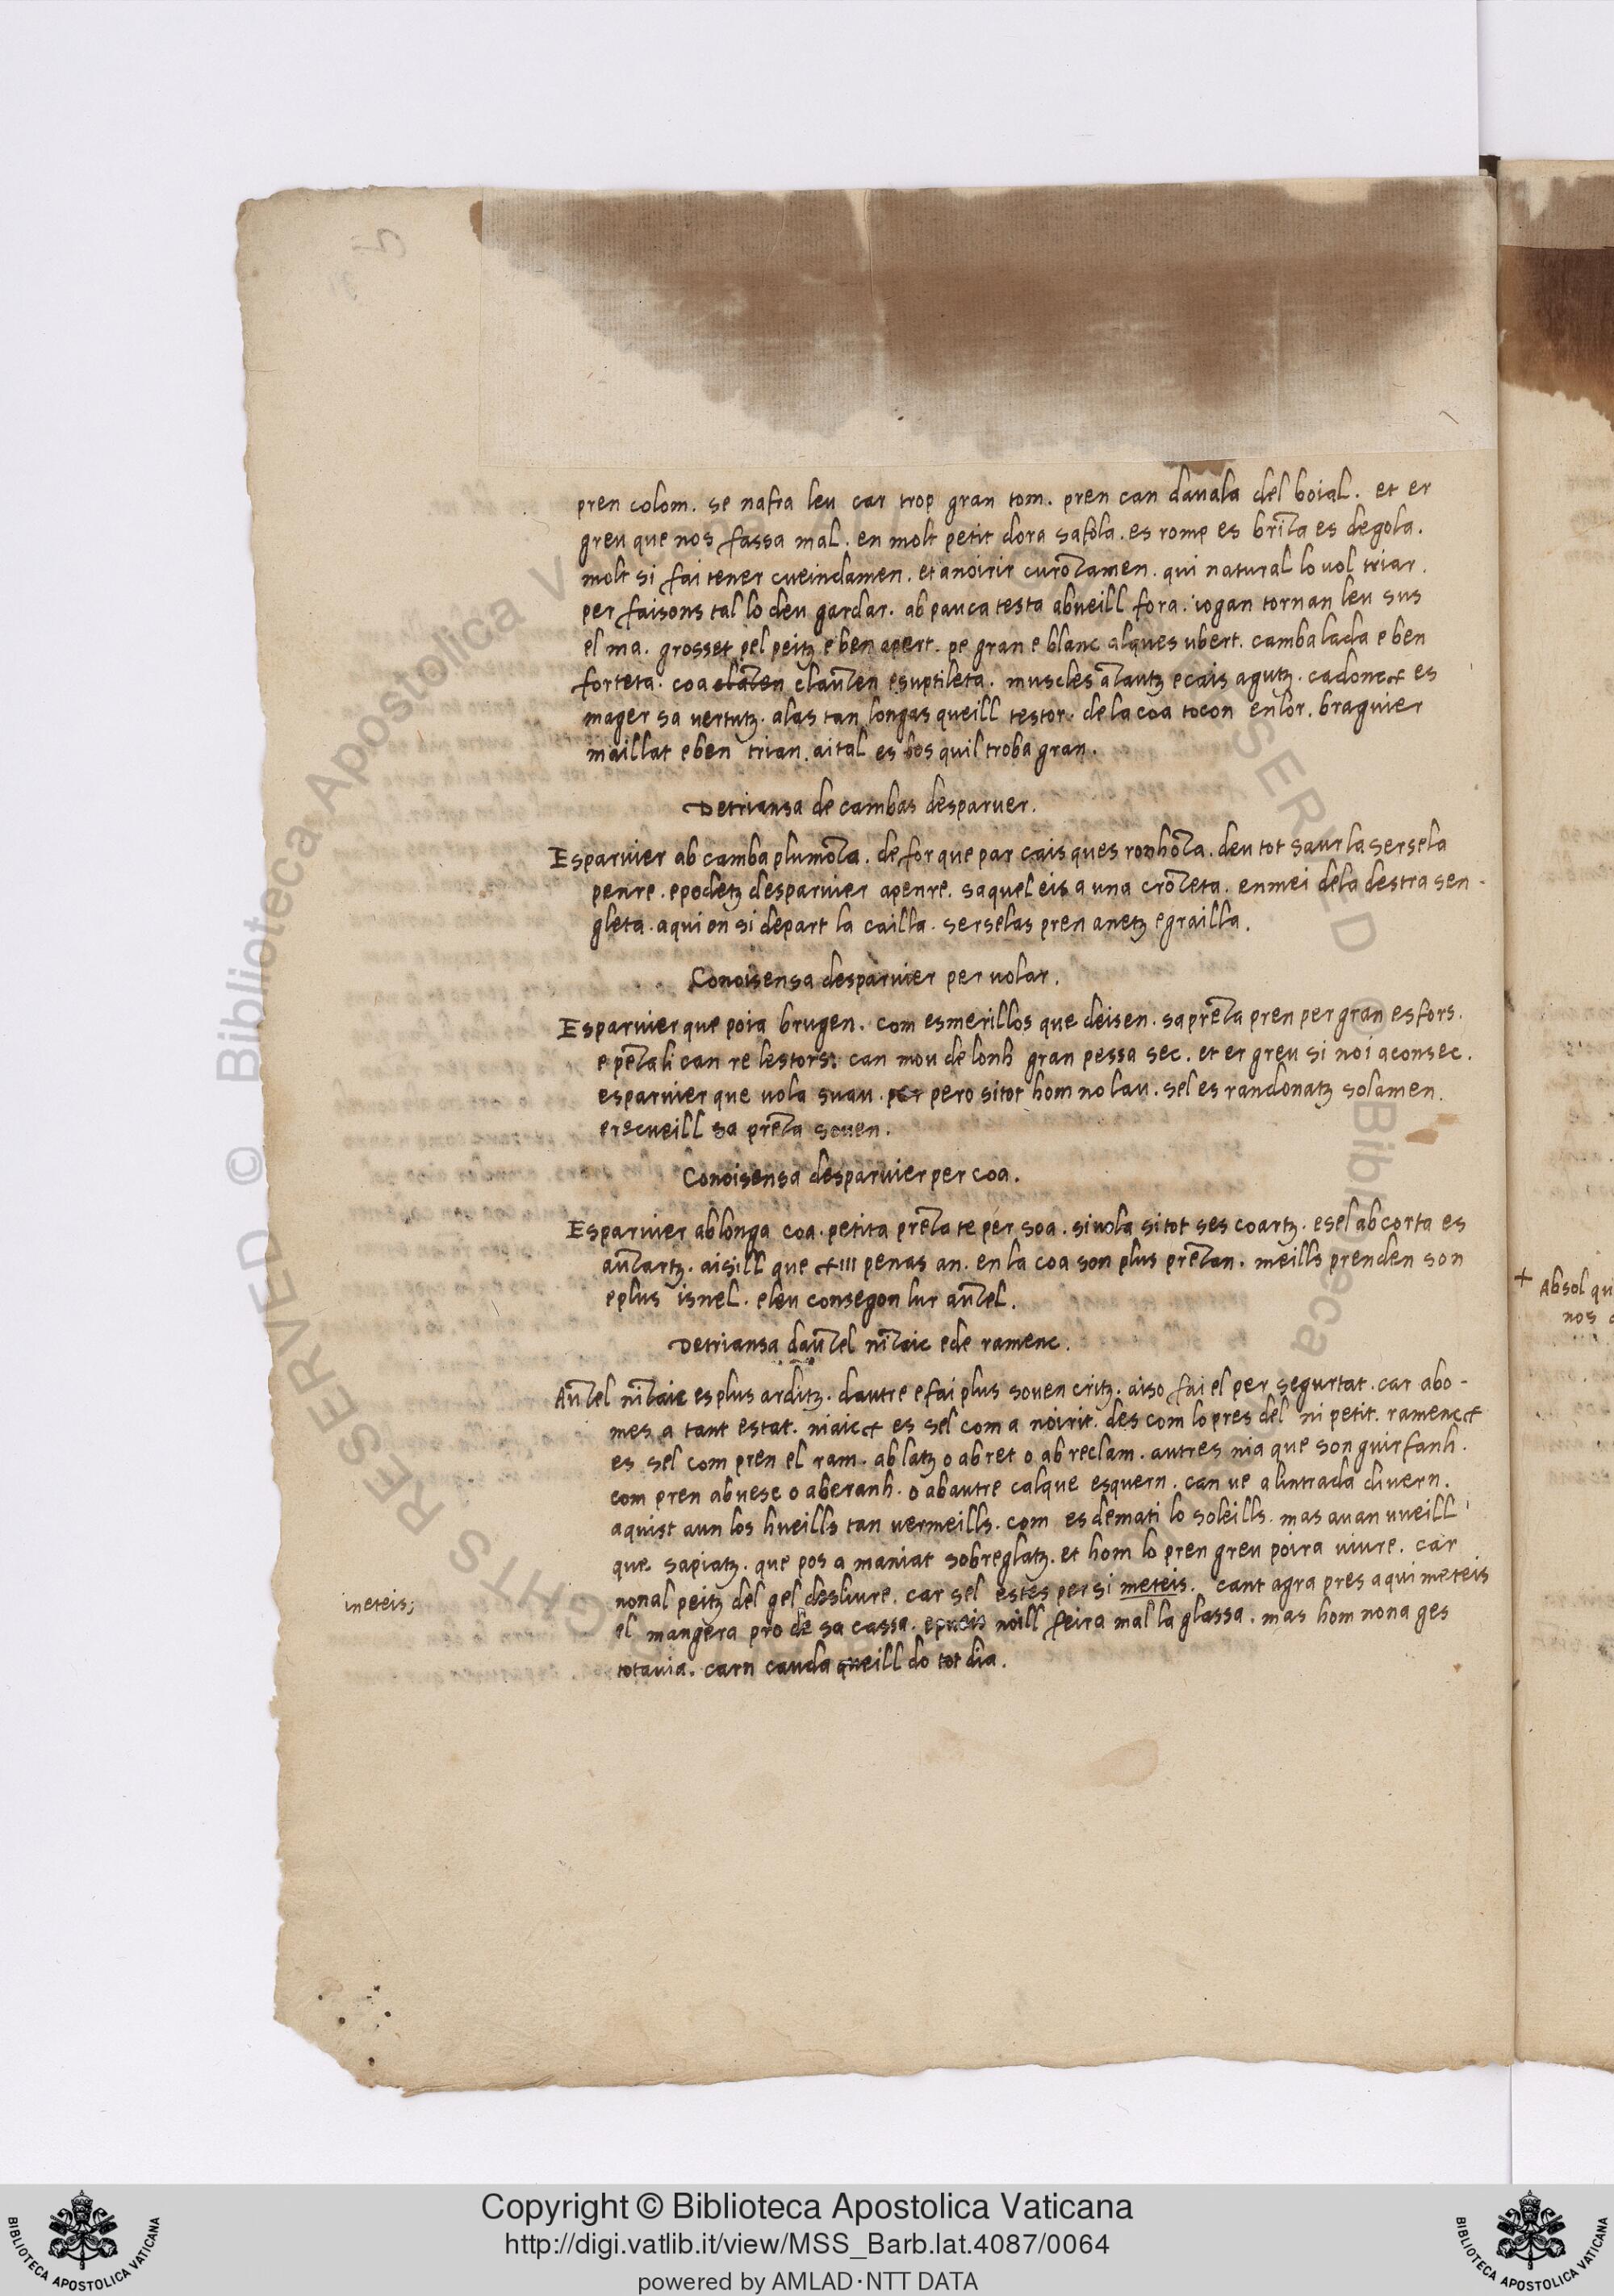 pren colom. se nafra leu car trop gran tom. pren can davala del boial. et er
greu que nos fassa mal. en molt petit dora safola. es rome es brīza es degola.
molt si fai tener cueindamen. et a noirir curōzamen. qui natural lo vol triar.
per faisons tal lo deu gardar. ab pauca testa abueill fora. iogan tornan leu sus
el ma. grosset pel peitz e ben apert. pe gran e blanc alques ubert. camba lada e ben
forteta. coa clāzen clauzen e suptileta. muscles āzautz e cais agutz. cadonc es
mager sa vertutz. alas tan longas queill testor. de la coa tocon en lor. braguier
maillat e ben trian. aital es bos quil troba gran.
Detriansa de cambas desparuer.
Esparvier ab camba plumōza. de for que par cais ques ronhōza. deu tot saur la sersela
penre. e podetz desparvier apenre. saquel eis a una crōzeta. en mei dela destra sen-
gleta. aqui on si depart la cailla. serselas pren anetz e grailla.
Conoisensa desparvier per volar.
Esparvier que poia brugen. com esmerillos que deisen. sa prēza pren per gran esfors.
e pēza li can re lestors. can mou de lonh gran pessa sec. et er greu si noi aconsec.
esparvier que vola suau. per pero sitot hom no lau. sel es randonatz solamen.
e recueill sa prēza soven.
Conoisensa desparvier per coa.
Esparvier ab longa coa. petita prēza te per soa. si vola si tot ses coartz. e sel ab corta es
auzartz. aisill que XIII penas an. en la coa son plus prēzan. meills prenden son
e plus isnel. e leu consegon lur auzel.
Detriansa dauzel nīzaic e de ramenc.
Auzel nīzaic es plus arditz. dautre e fai plus soven critz. aiso fai el per segurtat. car abo-
mes a tant estat. niaic es sel com a noirit. des com lo pres del ni petit. ramenc
es sel com pren el ram. ab latz o ab ret o ab reclam. autres nia que son guirfanh.
com pren ab vesc o ab eranh. o ab autre calque esquern. can ve a lintrada divern.
aquist aun los hueills tan vermeills. com es de mati lo soleills. mas avan vueill
que sapiatz. que pos a maniat sobre glatz. et hom lo pren greu poira viure. car
nonal peitz del gel desliure. car sel estes per si meteis. cant agra pres aqui meteis
meteis;
el mangera pro de sa cassa. e pueis noill feira mal la glassa. mas hom nona ges
totavia. carn cauda queill do tot dia.
+ Absol qu
nos
Copyright © Biblioteca Apostolica Vaticana
http://digi.vatlib.it/view/MSS_Barb.lat.4087/0064
powered by AMLAD·NTT DATA
BIBLIOTECA APOSTOLICA VATICANA
BIBLIOTECA APOSTOLICA VATICANA